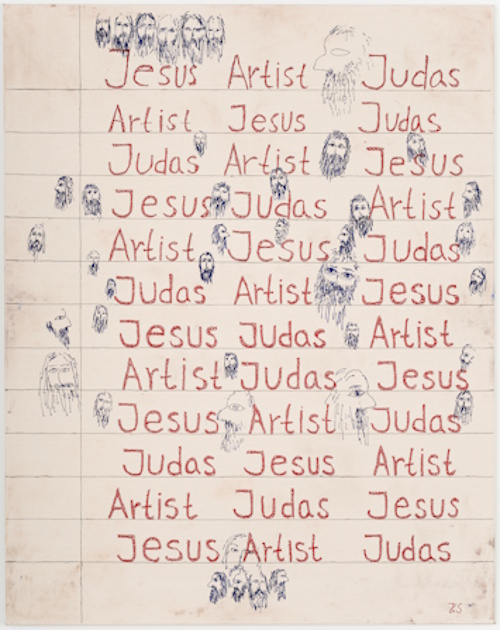 Jesus Artist Judas
Artist Jesus Judas
Judas Artist Jesus
Jesus Judas Artist
Artist Jesus Judas
Judas Artist Jesus
Jesus Judas Artist
Artist Judas Jesus
Jesus Artist Judas
Judas Jesus Artist
Artist Judas Jesus
Jesus Artist Judas